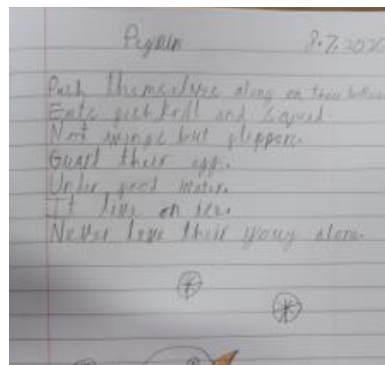 Pegnin 8.7.2020
Push themselves along on their bellies
Eats fish krill and squid.
Not wings but flippers.
Guard their egg.
Under good water.
It live on ice.
Never leve their young alone.